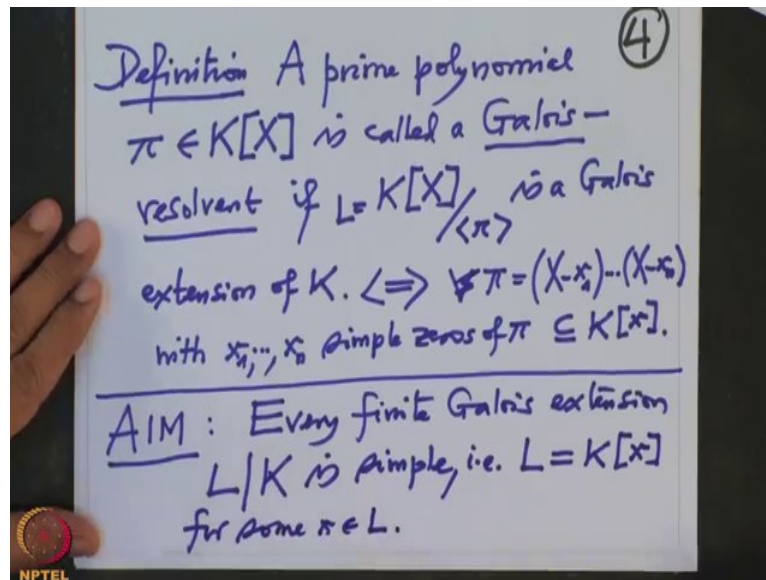 4
Definition A prime polynomial
π ∈ K[X] is called a Galois-
resolvent if L = K[X]/<π> is a Galois
extension of K. <=> π = (X-x₁)...(X-xₙ)
with x₁,...,xₙ simple zeros of π ⊆ K[x].
AIM : Every finite Galois extension
L|K is simple, i.e. L = K[x]
for some x ∈ L.
NPTEL